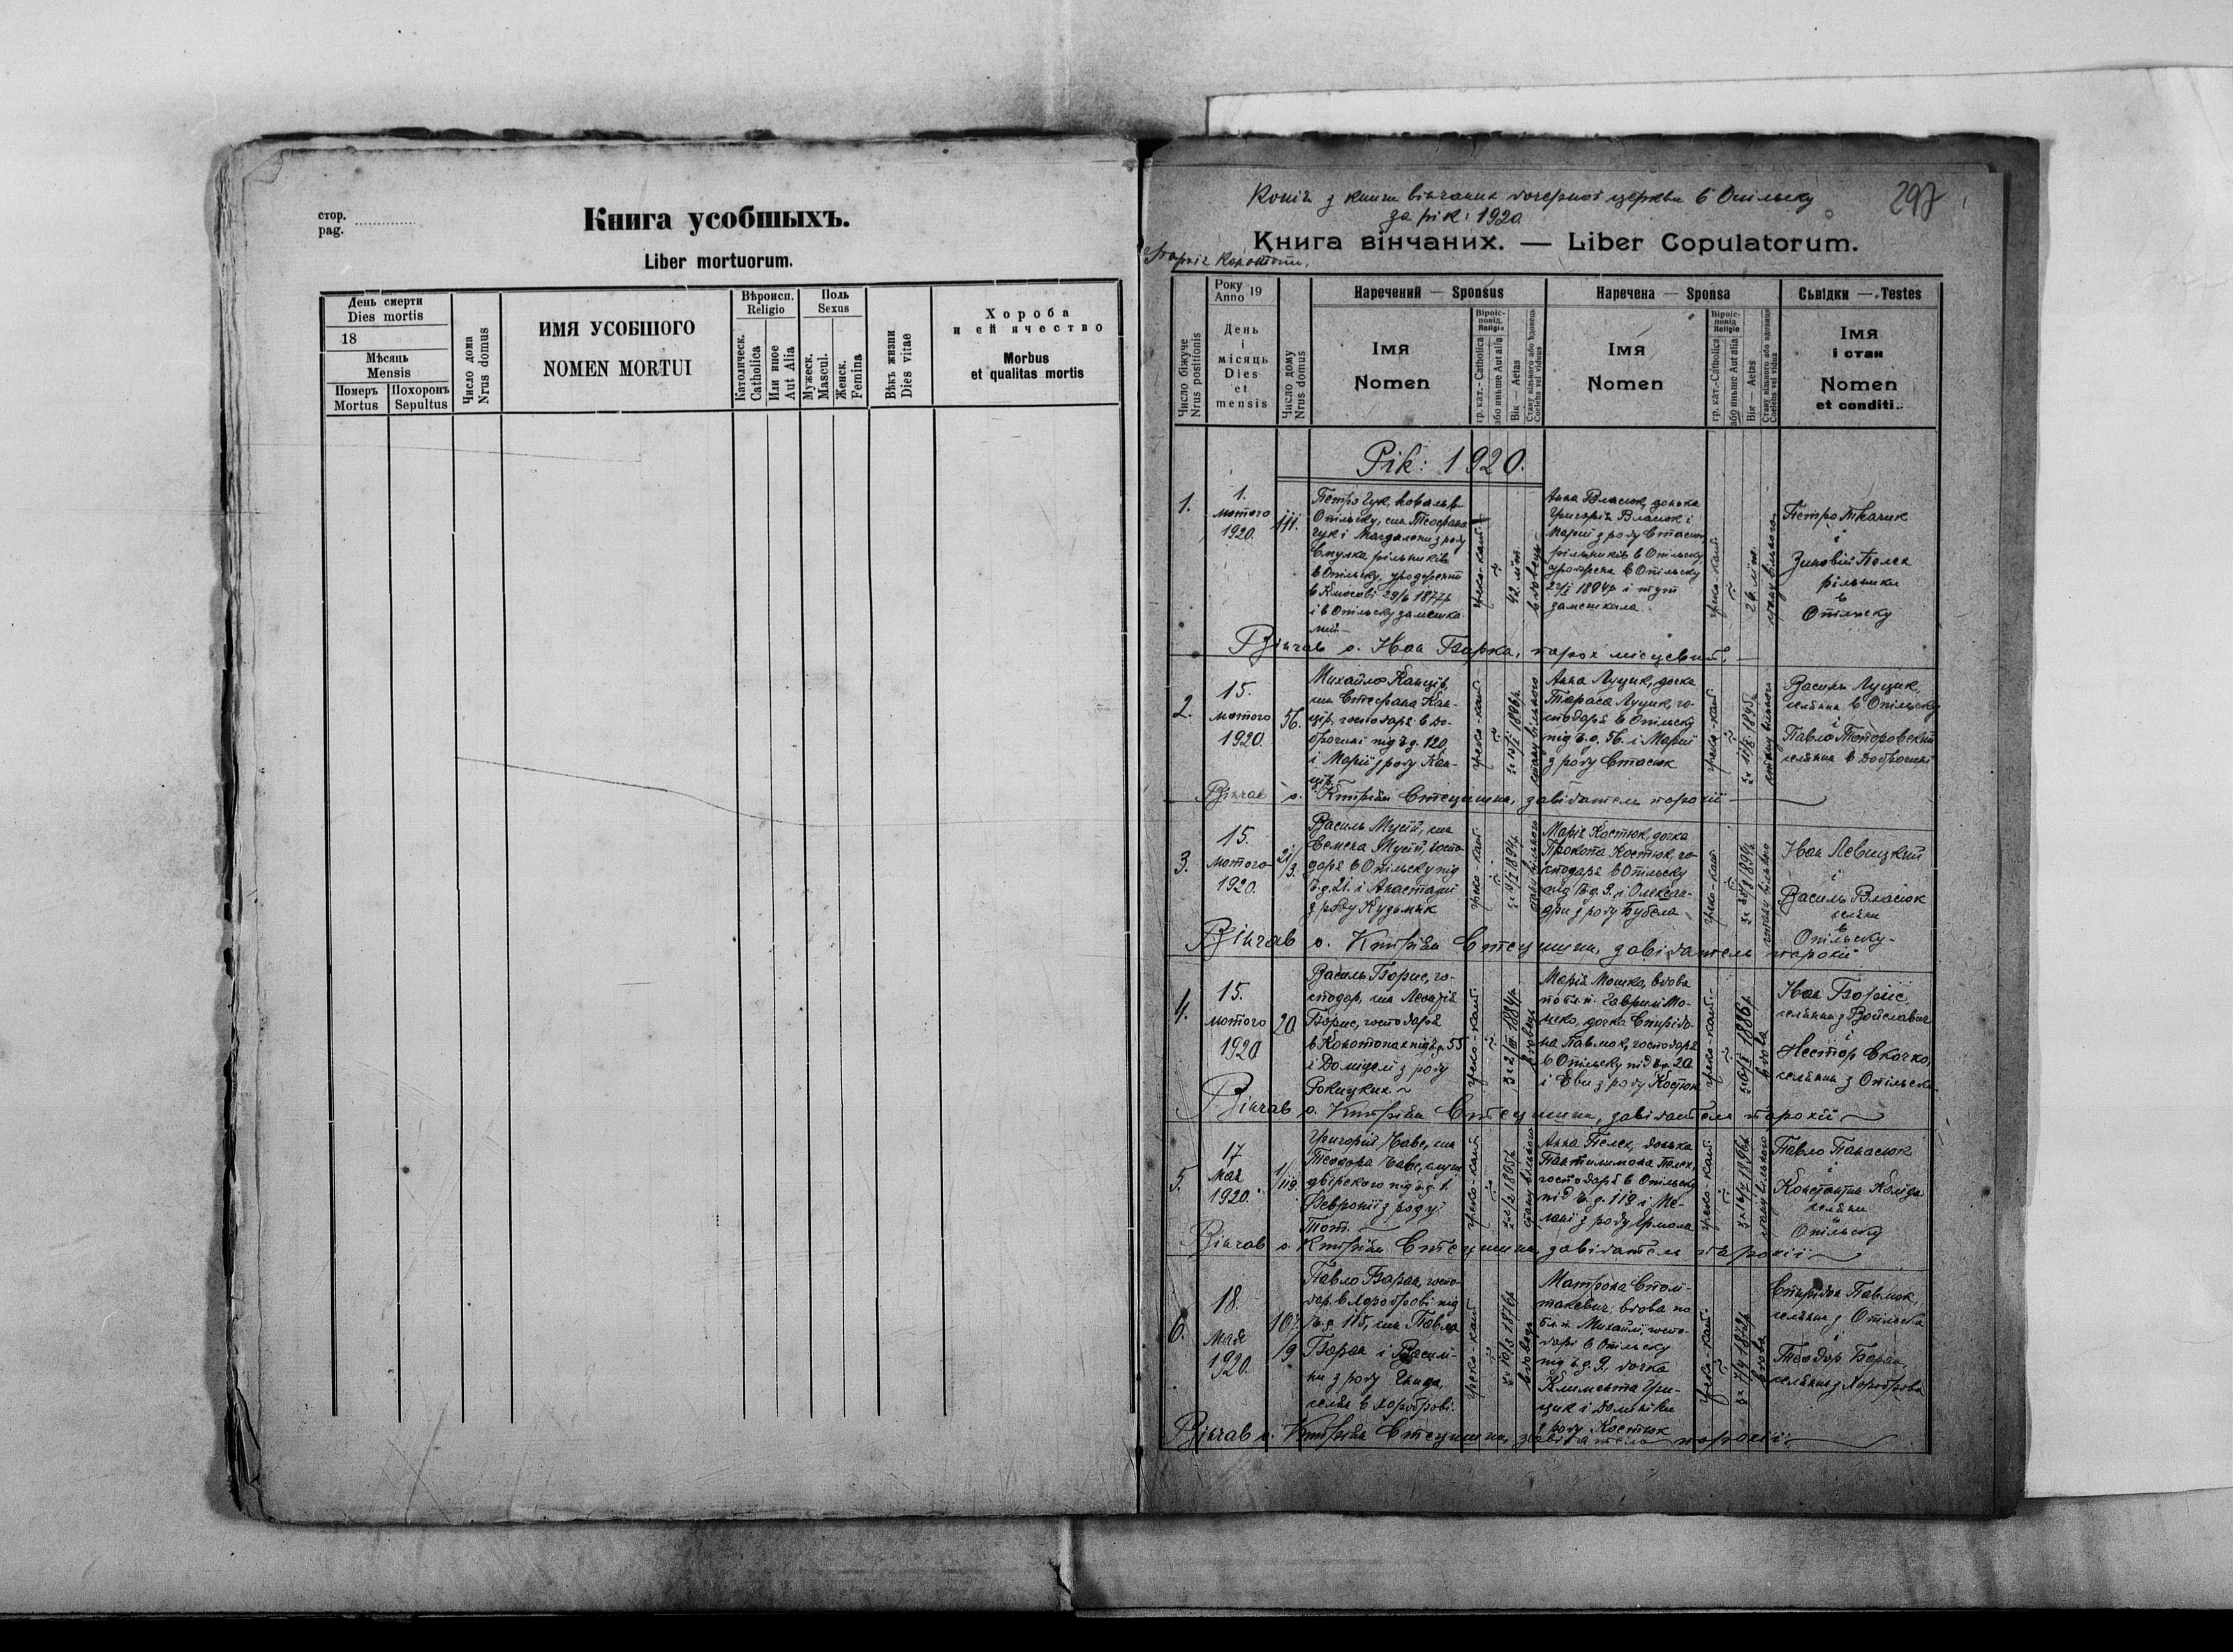 стор.
pag.
Книга усобшыхъ.
Liber mortuorum.
День смерти
Dies mortis
18
Мѣсяць
Mensis
Померъ
Mortus
Похоронъ
Sepultus
Число дома
Nrus domus
ИМЯ УСОБШОГО
NOMEN MORTUI
Вѣроисп.
Religio
Католическ.
Catholica
Или иное
Aut Alia
Поль
Sexus
Мужеск.
Mascul.
Женск.
Femina
Вѣкъ жизни
Dies vitae
Хороба
и єѣ ячество
Morbus
et qualitas mortis
Копія з книги вінчаних дочерної церкви в Опільску
за рік: 1920
297
Книга вінчаних. — Liber Copulatorum.
Парохія Конотопи.
Число біжуче
Nrus positionis
Року
Anno 19
День
і
місяць
Dies
et
mensis
Число дому
Nrus domus
Наречений — Sponsus
Імя
Nomen
Віроіс-
повід.
Religio
гр. кат. - Catholica
або иньше Aut alia
Вік — Aetas
Стану вільного або вдовець
Coelebs vel viduus
Наречена — Sponsa
Імя
Nomen
Віроіс-
повід
Religio
гр. кат. - Catholica
або иньше Aut alia
Вік — Aetas
Стану вільного або вдовиця
Coelebs vel vidua
Сьвідки — Testes
Імя
і стан
Nomen
et conditi..
Рік: 1920.
1.
1.
лютого
1920.
111.
Петро Гук, коваль в
Опільску, син Теофана
Гук і Магдалени з роду
Смулка, рільників
в Опільску, уроджений
29/6 1877р
і в Опільску замешка-
лий
греко-кат.
42 літ
вдовець
Анна Власюк, донька
Григорія Власюк і
Марії з роду Стасюк
рільників в Опільску
уроджена в Опільску
22/I 1894р і тут
замешкала.
греко-кат.
26 літ
стану вільного
Петро Ткачик
і
Зиновій Пелех
рільники
в
Опільску
Вінчав о. Іван Борка, парох місцевий.
2.
15.
лютого
1920.
56.
Михайло Канців,
син Стефана Кан-
ців, господаря в До-
брочині під ч.д. 120,
і Марії з роду Кан-
ців
греко-кат.
1896р.
стану вільного
Анна Луцик, дочка
Тараса Луцик, го-
сподаря в Опільску
під ч.д. 56. і Марії
з роду Стасюк
греко-кат.
1895р.
стану вільного
Василь Луцик,
селянин в Опільску
і
Павло Тоторовский
селянин в Доброчині
Вінчав о. Стецишин, завідатель парохії
3.
15.
лютого
1920.
21/3.
Василь Мусій, син
Семена Мусій, госпо-
даря в Опільску під
ч.д. 21. і Анастазії
з роду Кузьмяк
греко-кат.
1894р.
стану вільного
Марія Костюк, дочка
Прокопа Костюк, го-
сподаря в Опільску
під ч.д. 3. і Олексан-
дри з роду Бубела
греко-кат.
1894р.
стану вільного
Іван Левицкий
і
Василь Власюк
селяни
в
Опільску.
Вінчав о. Стецишин, завідатель парохії
4.
15.
лютого
1920
20
Василь Борис, го-
сподар, син
Борис, господаря
в Конотопах під ч.д. 55
і Доміцелі з роду
Рокицких.
греко-кат.
1884р.
вдовець
Марія Мошко, вдова
по бл.п. Гаврилі Мо-
шко, дочка Спирідо-
на Павлюк, господаря
в Опільску під ч.д. 20.
і Еви з роду Костюк
греко-кат.
1886р.
вдова
Іван Борис
селянин з Войславич
і
Нестор Скочко,
селянин з Опільска
Вінчав о. Стецишин, завідатель парохії
5.
17
мая
1920.
1/119.
Григорій Чабе, син
Теодора Чабе, слуги
двірского під ч.д. 1.
Февронії з роду
Тот.
греко-кат.
1895р.
стану вільного
Анна Пелех, донька
Пантилимона Пелех,
господаря в Опільску
під ч.д. 119 і Ме-
ланії з роду Ярмола
греко-кат.
1896р.
стану вільного
Павло Панасюк
і
Константин
селяни
в
Опільску
Вінчав о. Стецишин, завідатель парохії
6.
18.
мая
1920.
/9
Павло Баран, госпо-
дар. в Хороброві під
ч.д. 115, син Павла
Баран і Васили-
ни з роду
селян в Хороброві.
греко-кат.
10/3 1876р.
вдовець
Матрона Столи-
такевич, вдова по
бл.п. Михайлі, госпо-
дарі в Опільску
під ч.д. 9, дочка
Климента Гри-
цик і Домініки
з роду Костюк
греко-кат.
1872р.
вдова
Спирідон Павлюк,
селянин з Опільска
і
Теодор Баран,
селянин з Хороброва
Вінчав о. Стецишин, завідатель парохії